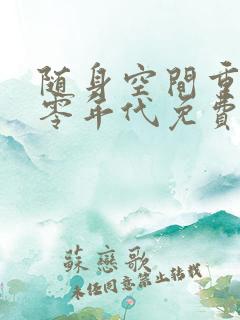 随身空間重
零年代免費
蘇戀歌
未经同意禁止转载